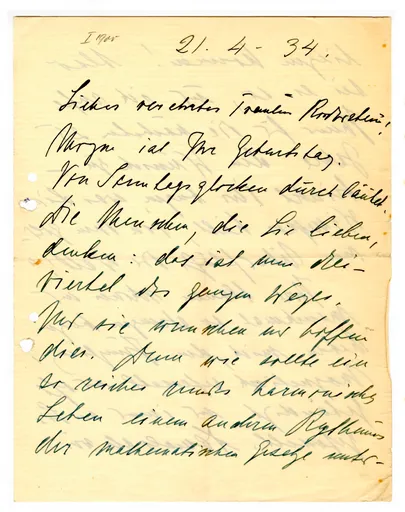 21. 4 - 34.
Liebes verehrtes Fräulein
Morgen ist Ihr Geburtstag.
Von Sonntagsglocken durchläutet.
Die Menschen, die Sie lieben,
denken: das ist nun drei-
viertel des ganzen Weges.
Für sie wünschen wir hoffen
dies. Denn wie sollte ein
so reiches rundes harmonisches
Leben einem anderen Rythmus
der mathematischen Gesetze unter-